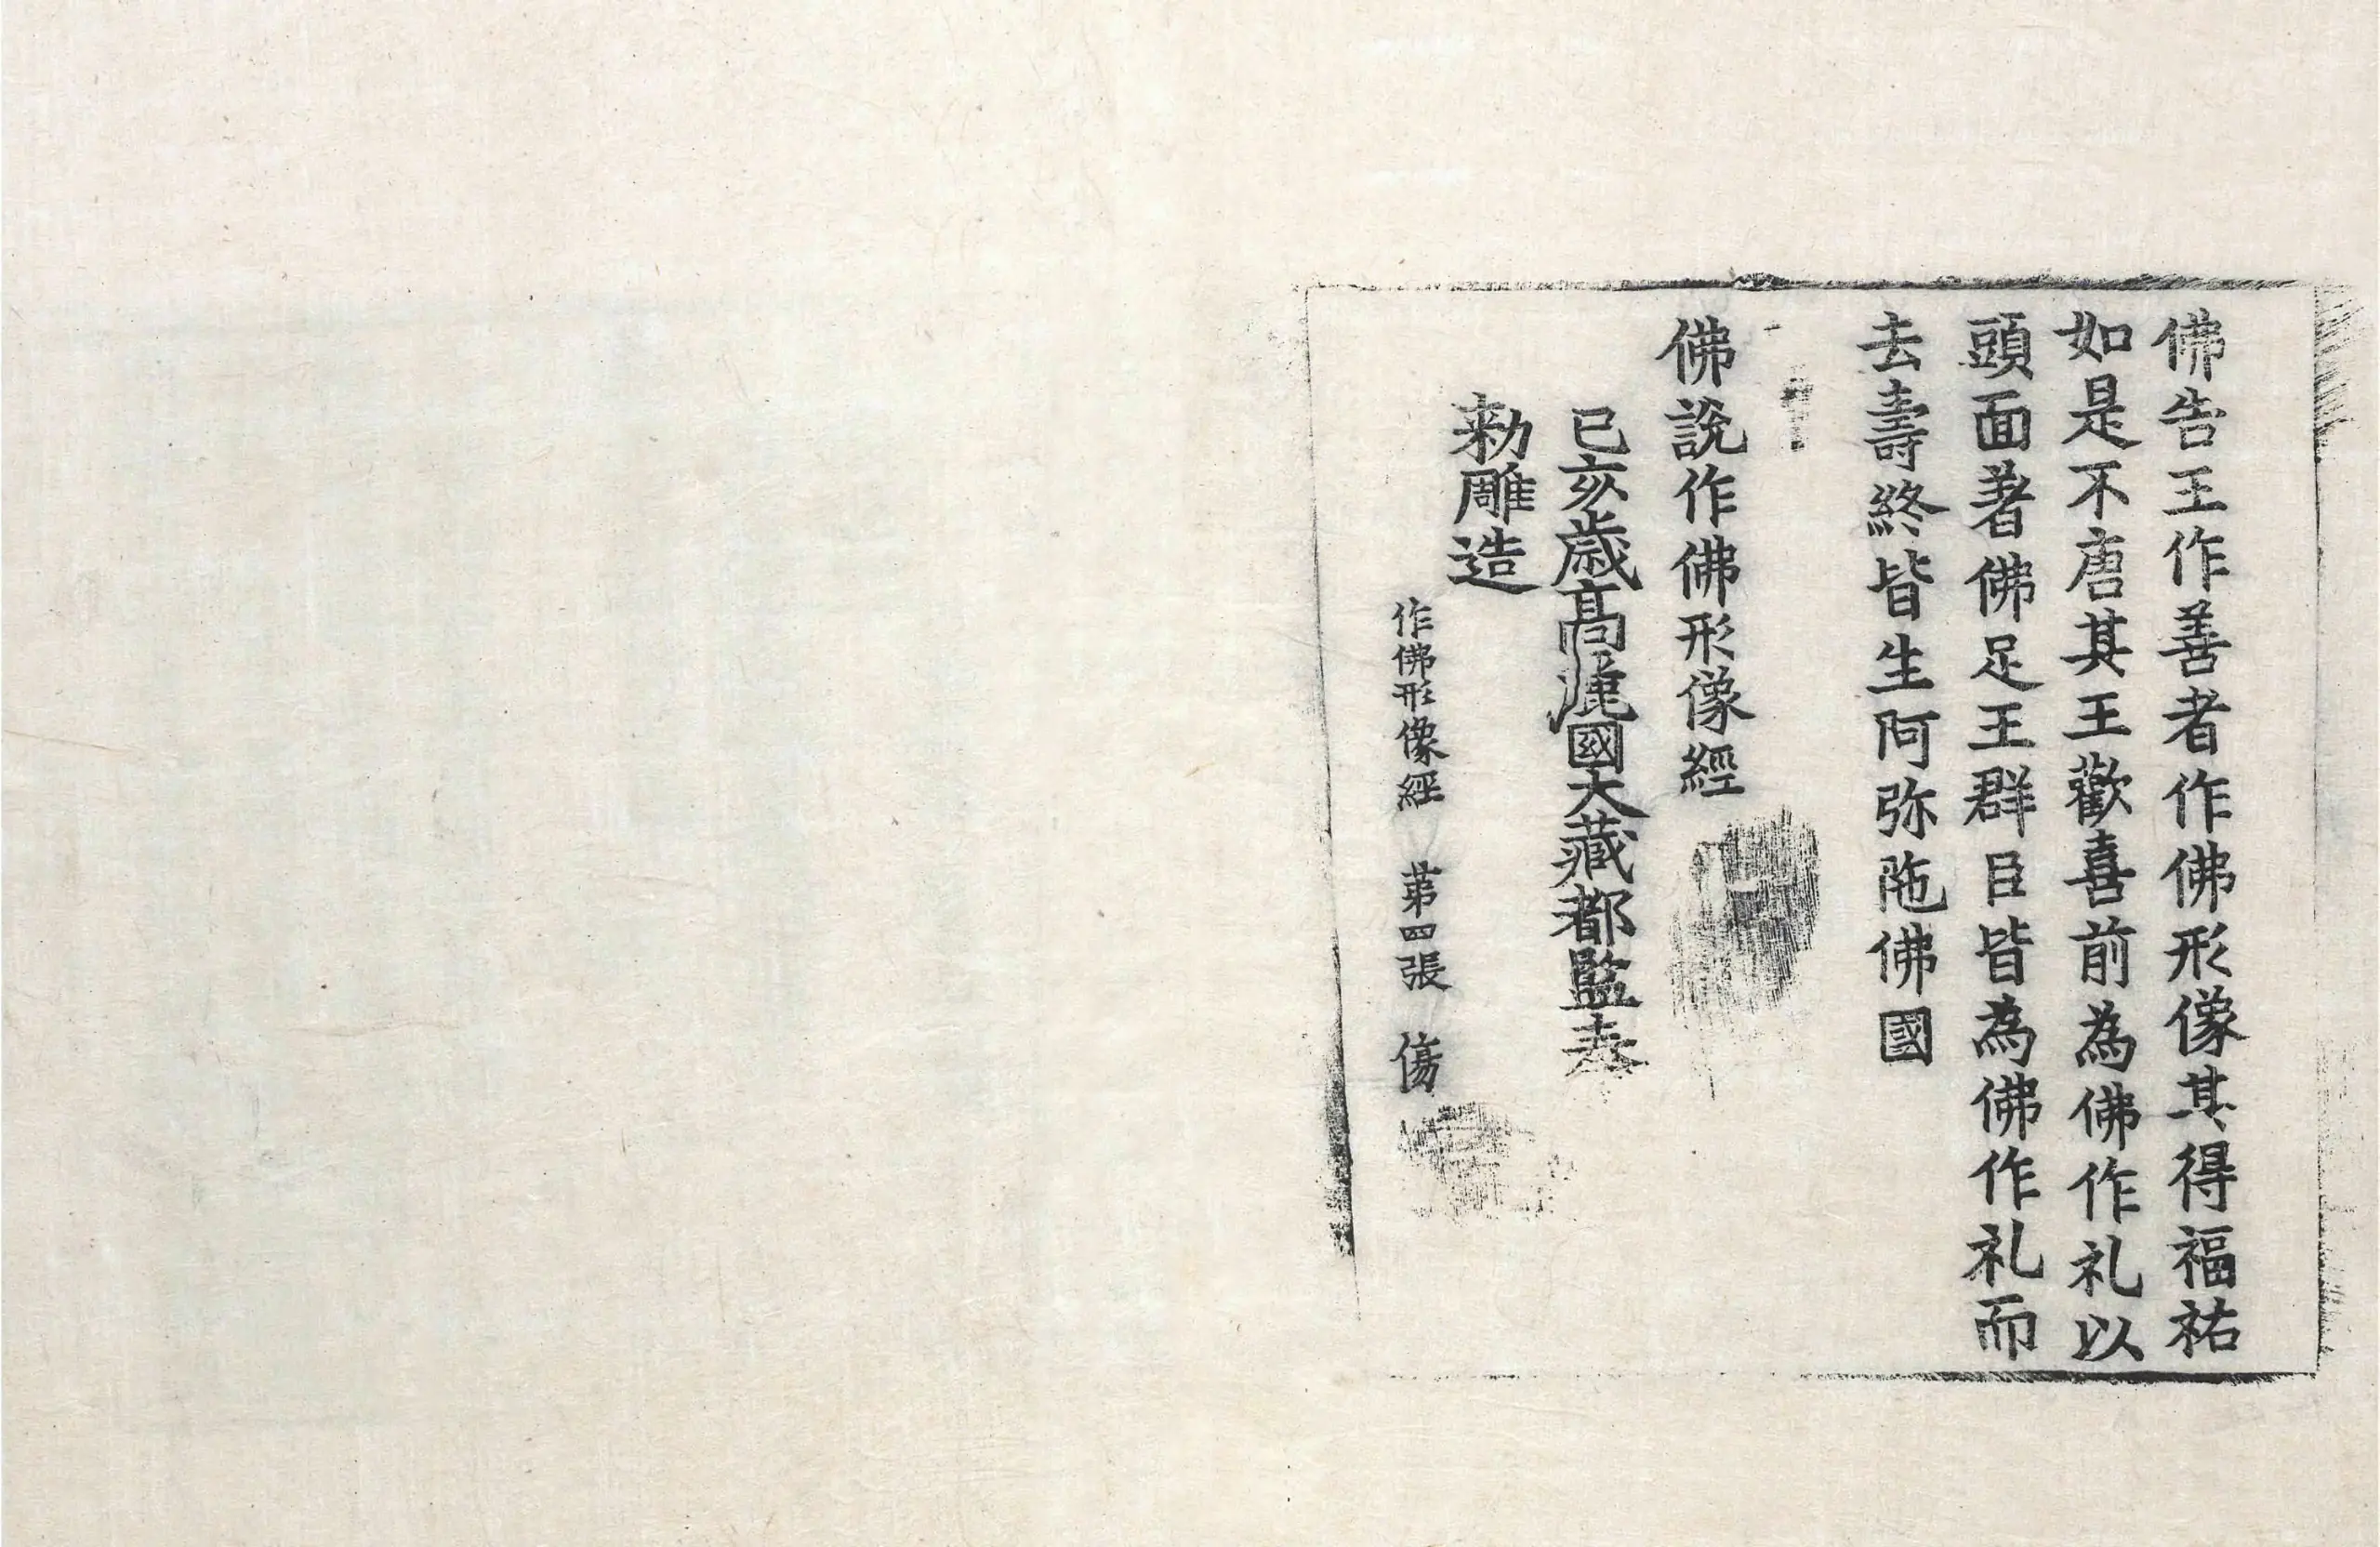 佛告王作善者作佛形像其得福祐
如是不唐其王歡喜前為佛作礼以
頭面著佛足王群臣皆為佛作礼而
去壽終皆生阿弥陁佛國
佛說作佛形像經
己亥歳高麗國大藏都監奉
勑雕造
作佛形像經 苐四張 傷